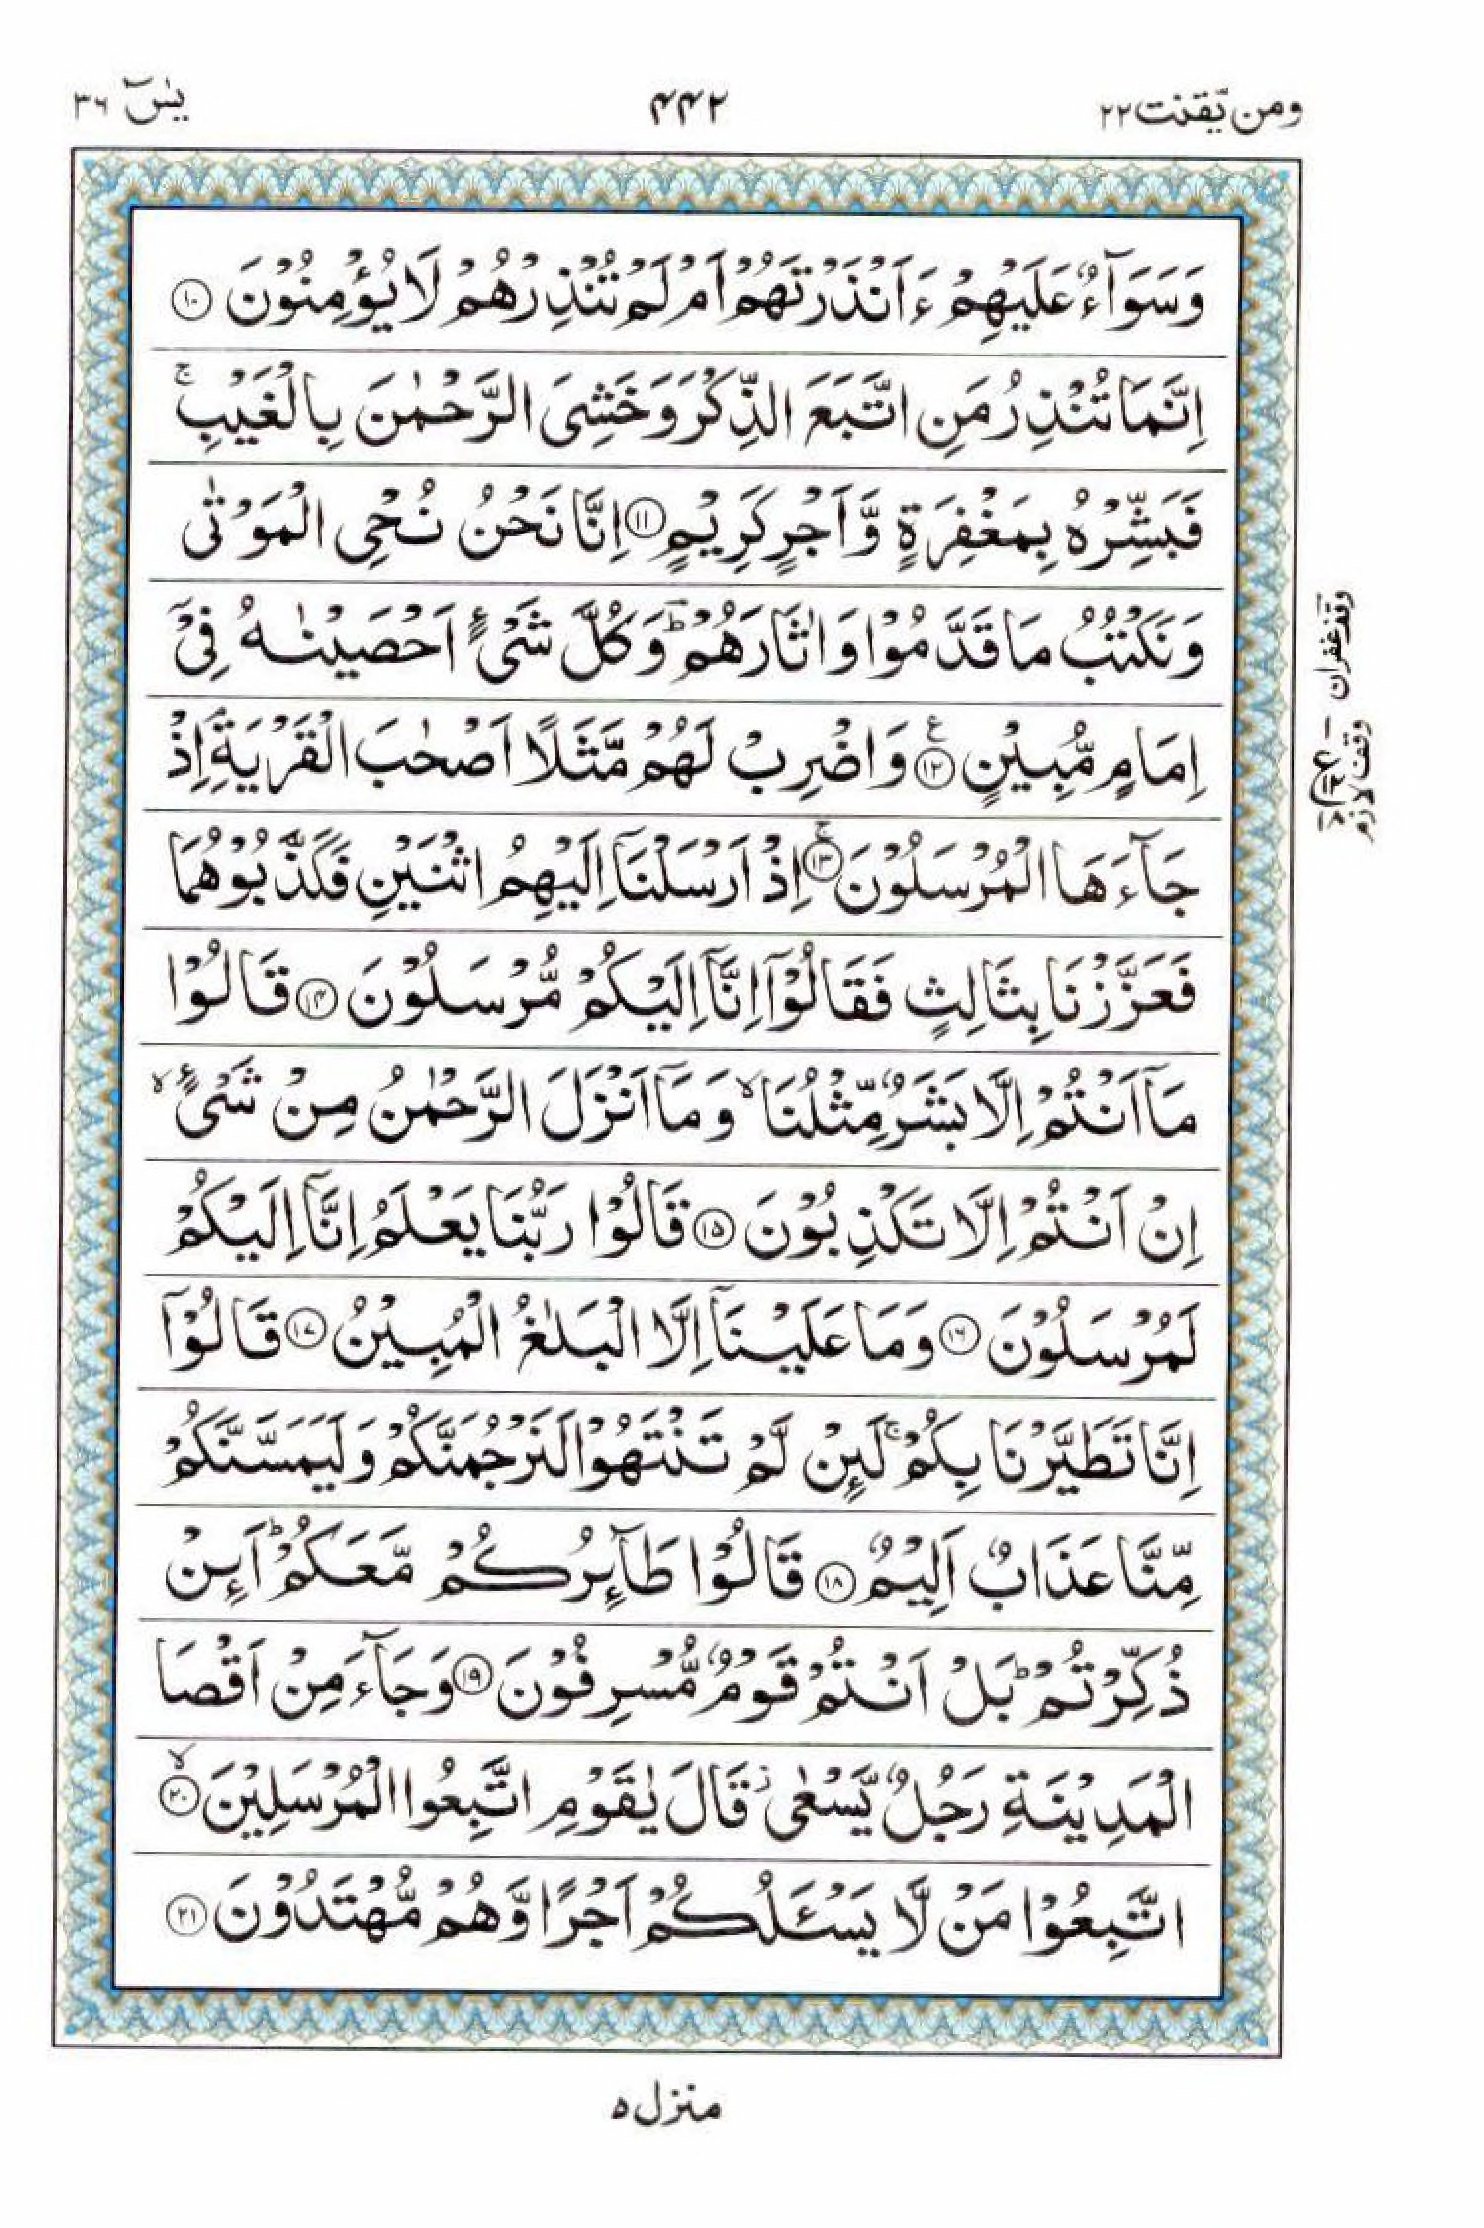 ومن يّقنت ٢٢
٤٤٢
يٰسٓ ٣٦
وَسَوَآءٌ عَلَيْهِمْ ءَاَنْذَرْتَهُمْ اَمْ لَمْ تُنْذِرْهُمْ لَا يُؤْمِنُوْنَ ۝١٠
اِنَّمَا تُنْذِرُ مَنِ اتَّبَعَ الذِّكْرَ وَخَشِىَ الرَّحْمٰنَ بِالْغَيْبِ ۚ
فَبَشِّرْهُ بِمَغْفِرَةٍ وَّاَجْرٍ كَرِيْمٍ ۝١١ اِنَّا نَحْنُ نُحْىِ الْمَوْتٰى
وَنَكْتُبُ مَا قَدَّمُوْا وَاٰثَارَهُمْ ؕ وَكُلَّ شَىْءٍ اَحْصَيْنٰهُ فِىْۤ
اِمَامٍ مُّبِيْنٍ ۝١٢ ع وَاضْرِبْ لَهُمْ مَّثَلًا اَصْحٰبَ الْقَرْيَةِ ۘ اِذْ
جَآءَهَا الْمُرْسَلُوْنَ ۝١٣ ۚ اِذْ اَرْسَلْنَاۤ اِلَيْهِمُ اثْنَيْنِ فَكَذَّبُوْهُمَا
فَعَزَّزْنَا بِثَالِثٍ فَقَالُوْۤا اِنَّاۤ اِلَيْكُمْ مُّرْسَلُوْنَ ۝١٤ قَالُوْا
مَاۤ اَنْتُمْ اِلَّا بَشَرٌ مِّثْلُنَا ۙ وَمَاۤ اَنْزَلَ الرَّحْمٰنُ مِنْ شَىْءٍ ۙ
اِنْ اَنْتُمْ اِلَّا تَكْذِبُوْنَ ۝١٥ قَالُوْا رَبُّنَا يَعْلَمُ اِنَّاۤ اِلَيْكُمْ
لَمُرْسَلُوْنَ ۝١٦ وَمَا عَلَيْنَاۤ اِلَّا الْبَلٰغُ الْمُبِيْنُ ۝١٧ قَالُوْۤا
اِنَّا تَطَيَّرْنَا بِكُمْ ۚ لَئِنْ لَّمْ تَنْتَهُوْا لَنَرْجُمَنَّكُمْ وَلَيَمَسَّنَّكُمْ
مِّنَّا عَذَابٌ اَلِيْمٌ ۝١٨ قَالُوْا طَآئِرُكُمْ مَّعَكُمْ ؕ اَئِنْ
ذُكِّرْتُمْ ؕ بَلْ اَنْتُمْ قَوْمٌ مُّسْرِفُوْنَ ۝١٩ وَجَآءَ مِنْ اَقْصَا
الْمَدِيْنَةِ رَجُلٌ يَّسْعٰى ز قَالَ يٰقَوْمِ اتَّبِعُوا الْمُرْسَلِيْنَ ۝٢٠ ۙ
اتَّبِعُوْا مَنْ لَّا يَسْـَٔلُكُمْ اَجْرًا وَّهُمْ مُّهْتَدُوْنَ ۝٢١
وقف غفران
وقف لازم
منزل ٥